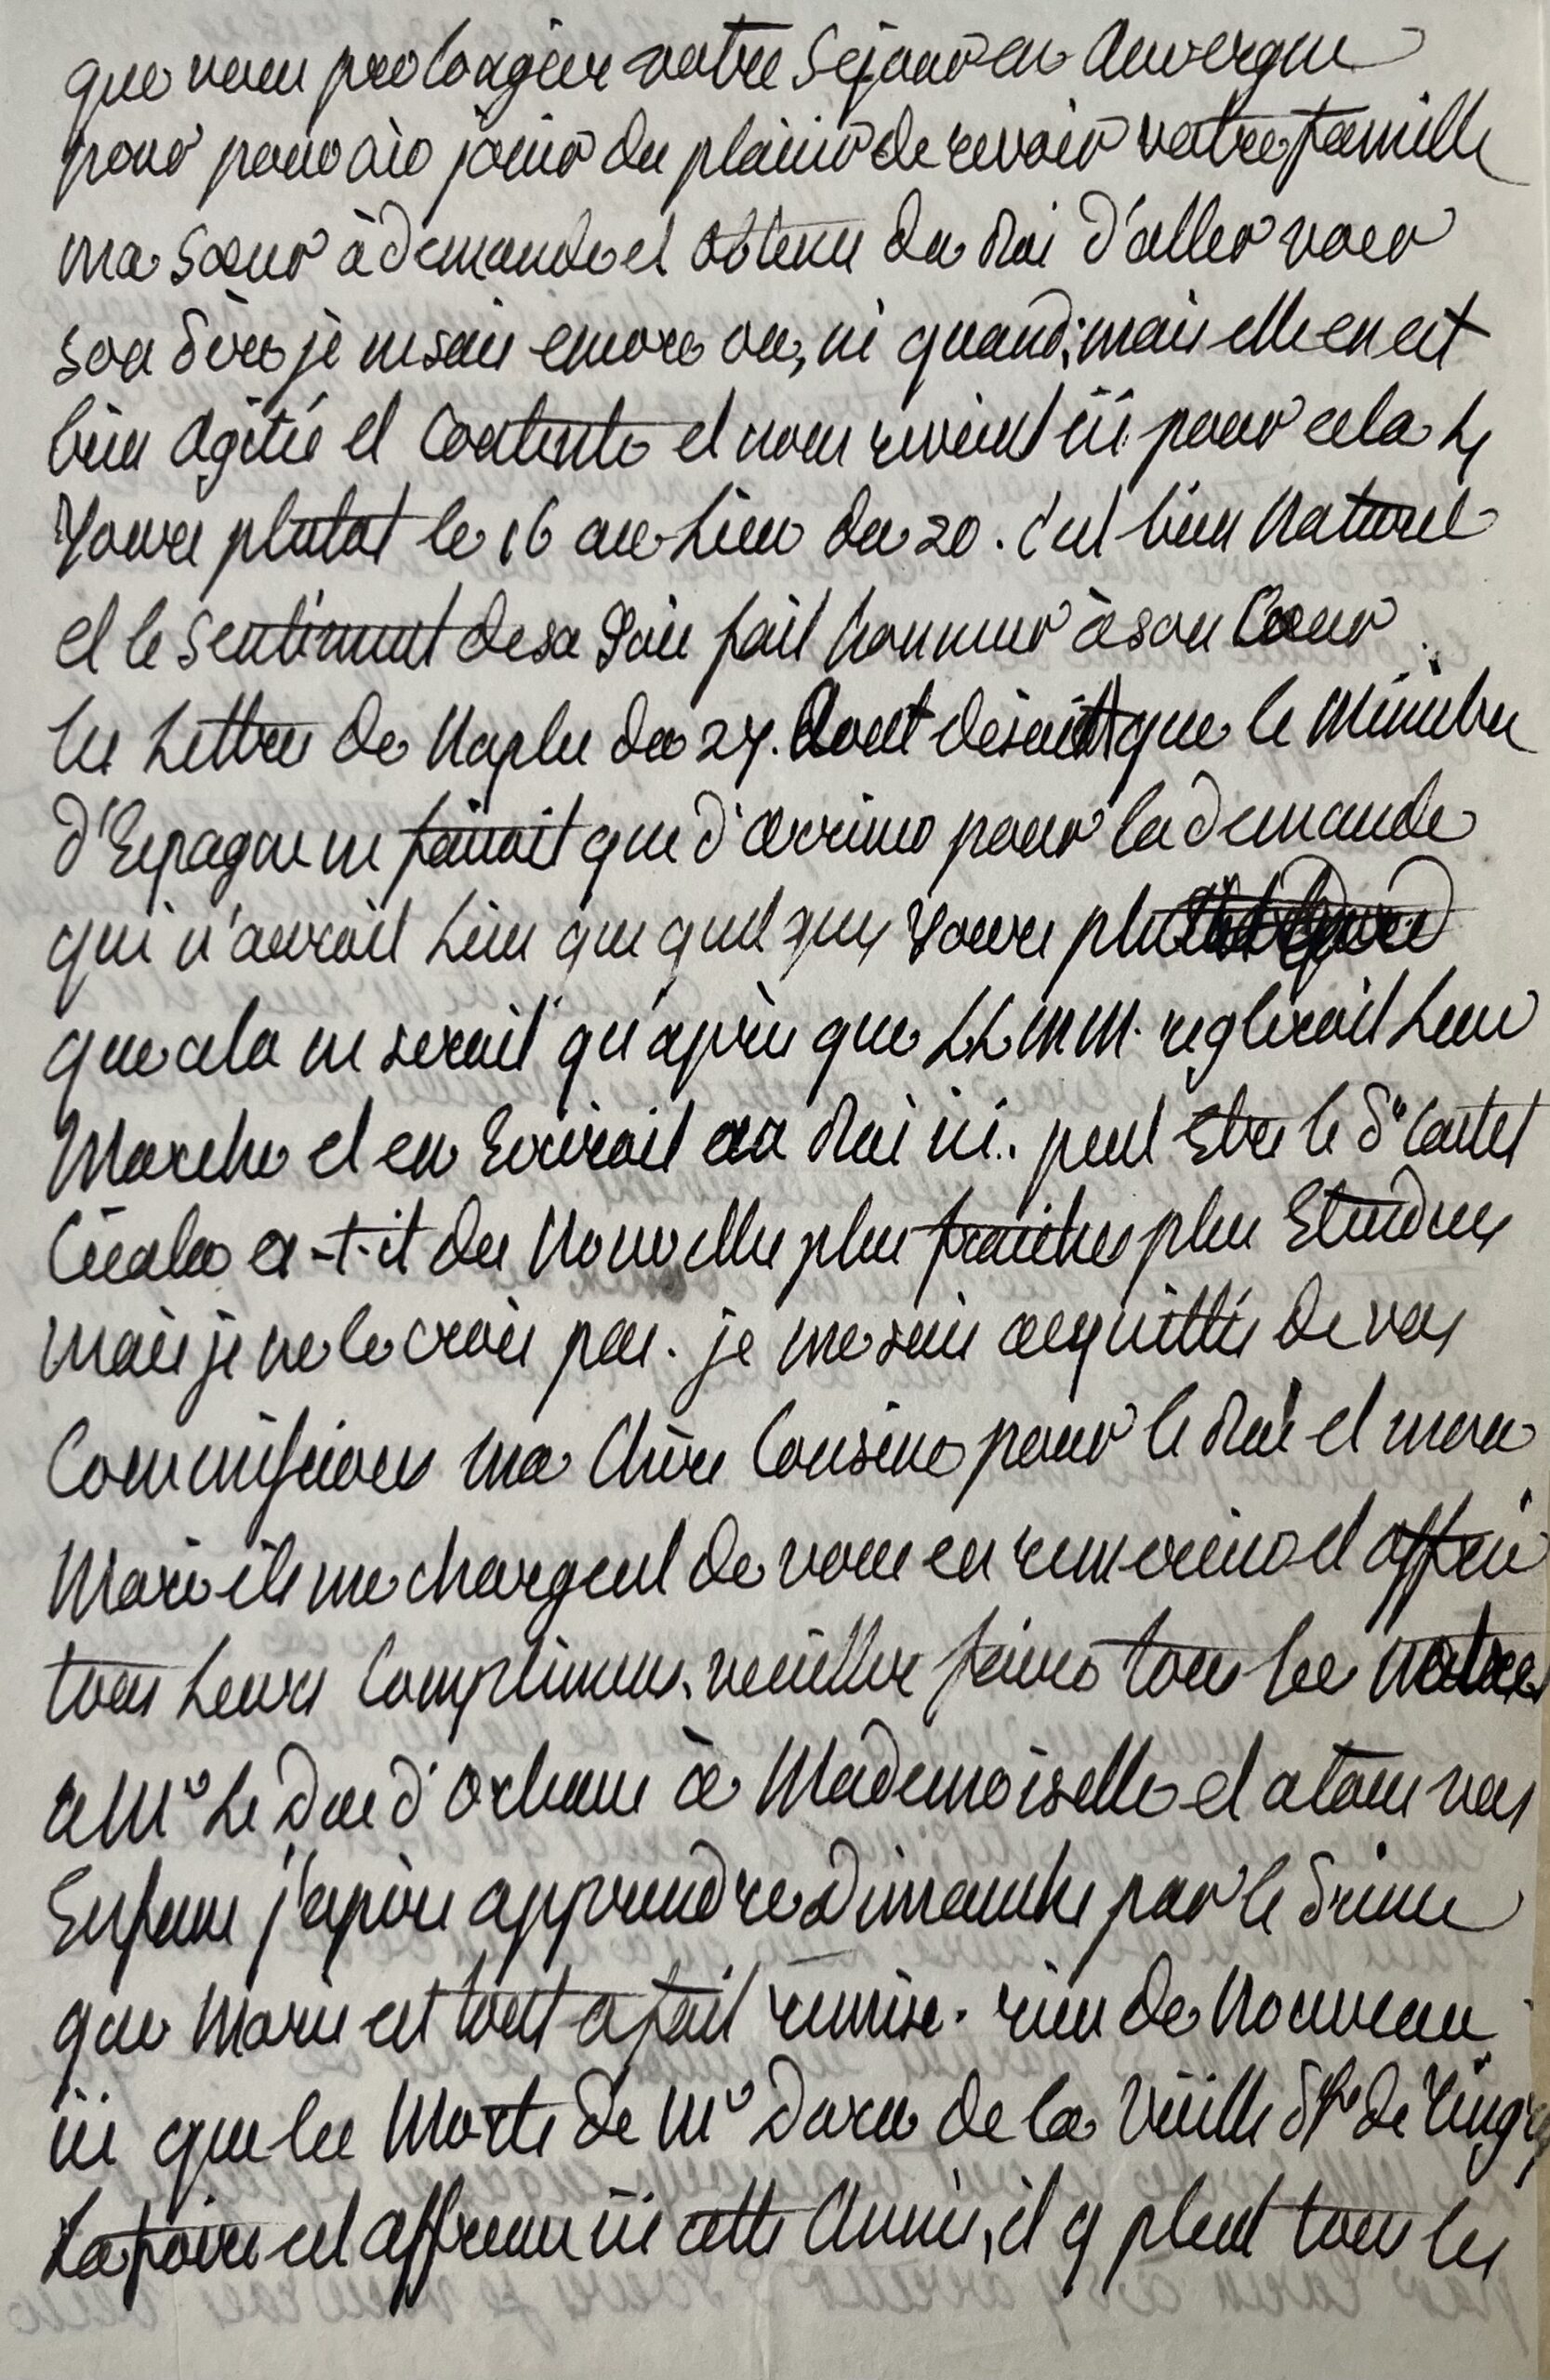 que vous prolongiez votre Sejour en Auvergne
pour pouvoir jouir du plaisir de revoir votre famille
ma Soeur à demandé et obtenu du Roi d'aller voir
son Père je ne sais encore ou, ni quand; mais elle en est
bien agitée et Contente et nous revient ici pour cela 4
Jours plutot le 16 au Lieu du 20. c'est bien Naturel
et le Sentiment de sa Joie fait honneur à son Coeur
les Lettres de Naples du 27. Aout disait que le Ministre
d'Espagne ne faisait que d'arriver pour la demande
qui n'aurait Lieu que quelques Jours plus
que cela ne serait qu'après que LL MM. reglerait Leur
Marche et en Ecrirait au Roi ici. peut Etre le Pce Castel
Cicala a-t-il des Nouvelles plus fraiches plus Etendues
mais je ne le crois pas. je me suis acquittée de vos
Commissions ma Chère Cousine pour le Roi et mon
Mari ils me chargent de vous en remercier et offrir
tous Leurs Complimens. veuillez faire tous les notres
a Mr Le Duc d'Orleans à Mademoiselle et a tous vos
Enfans j'espère apprendre Dimanche par le Prince
que Marie est tout a fait remise. rien de Nouveau
ici que les Morts de Mr Daru de la Vieille Pce de Tingry
La foire est affreuse ici cette Année, il y pleut tous les